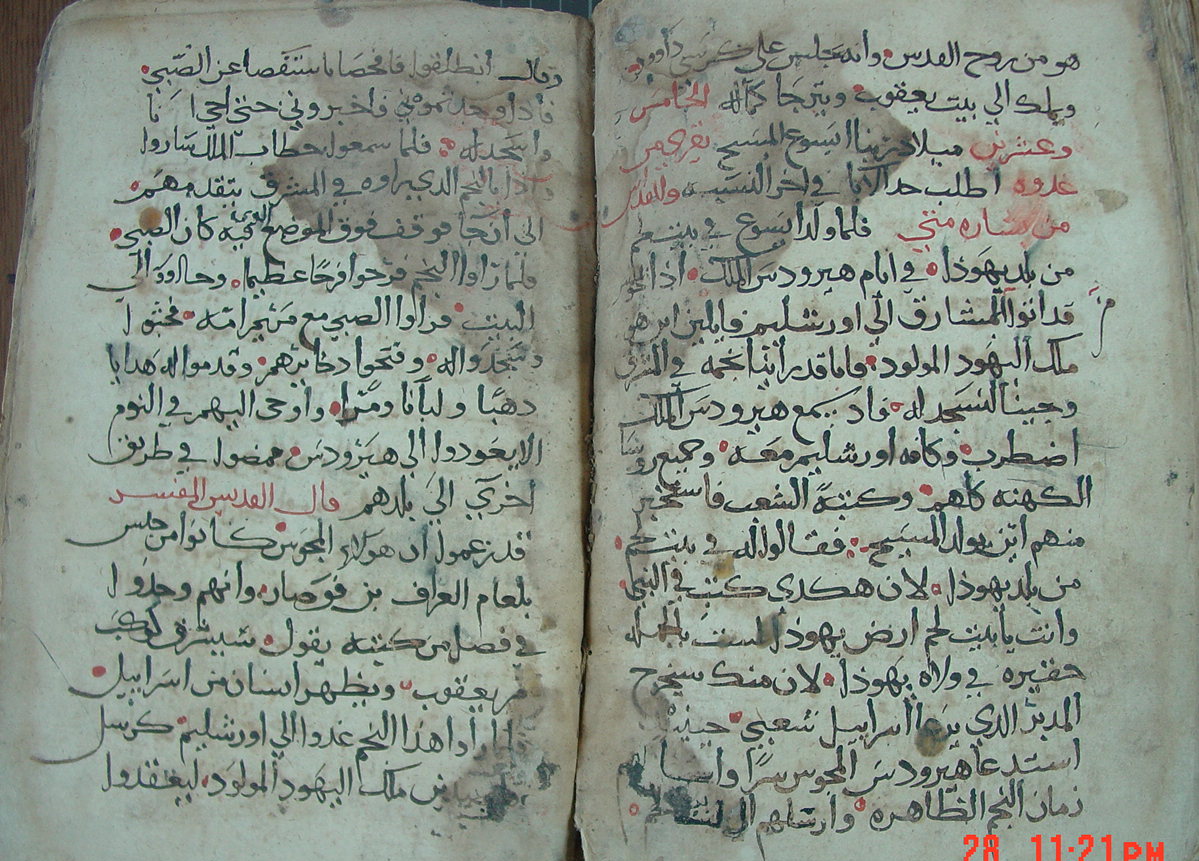 هو من روح القدس وانه يجلس على كرسي داوود
ويملك الي بيت يعقوب ويترجا كماله الخامس
وعشرين ميلاد ربنا ايسوع المسيح يقري من
غدوه اطلب حد الابا في اخر النسبه والقداس
من بشاره متي فلما ولد ايسوع في بيت لحم
من بلد يهوذا في ايام هيرودس الملك اذا
قد اتوا المشارق الي اورشليم قايلين اين هو
ملك اليهود المولود فاما قد راينا نجمه في المشرق
وجينا لنسجد له فاد سمع هيرودس الملك
اضطرب وكافه اورشليم معه وجميع روسا
الكهنه كلهم وكتبة الشعب فاستخبر
منهم اين يولد المسيح فقالوا له في بيت لحم
من بلد يهوذا لان هكدي كتب في النبي
وانت يا بيت لحم ارض يهوذا لست
حقيره في ولاه يهوذا لان منك سيخرج
المدبر الدي يرعا اسراييل شعبي حينيد
استدعا هيرودس المجوس سرا
زمان النجم الظاهره وارسلهم الي بيت لحم
وقال انطلقوا فافحصا مستقصا عن الصبي
فاذا وجدتموه فاخبروني حتي اجي انا
واسجد له فلما سمعوا خطاب الملك ساروا
واذا بالنجم الدي راوه في المشرق يتقدمهم
الي ان جا فوقف فوق الموضع الدي فيه كان الصبي
فلما راوا النجم فرحوا فرحا عظيما وجاووا الي
البيت فراوا الصبي مع مريم امه فجثوا
وسجدوا له وفتحوا دخايرهم وقدموا له هدايا
دهبا ولبانا ومرا واوحي اليهم في النوم
الا يعودوا الي هيرودس فمضوا في طريق
اخري الي بلدهم قال القديس المفسر
قد زعموا ان هولاي المجوس كانوا من جنس
بلعام العراف بن فوصار وانهم وجدوا
في فصل من كتبه يقول سيشرق كوكب
من يعقوب ويظهر انسان من اسراييل
فلما راوا هذا النجم غدوا الي اورشليم كرسل
من ملك اليهود المولود ليعقدوا
28 11:21 PM